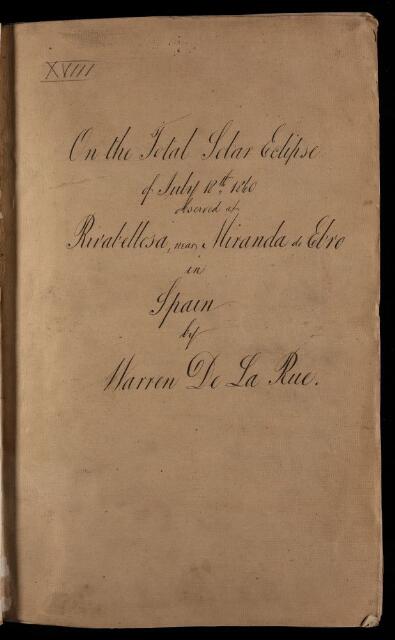 XVIII
On the Total Solar Eclipse
of July 18th 1860
observed at
Rivabellosa, near Miranda de Ebro
in
Spain
by
Warren De La Rue.